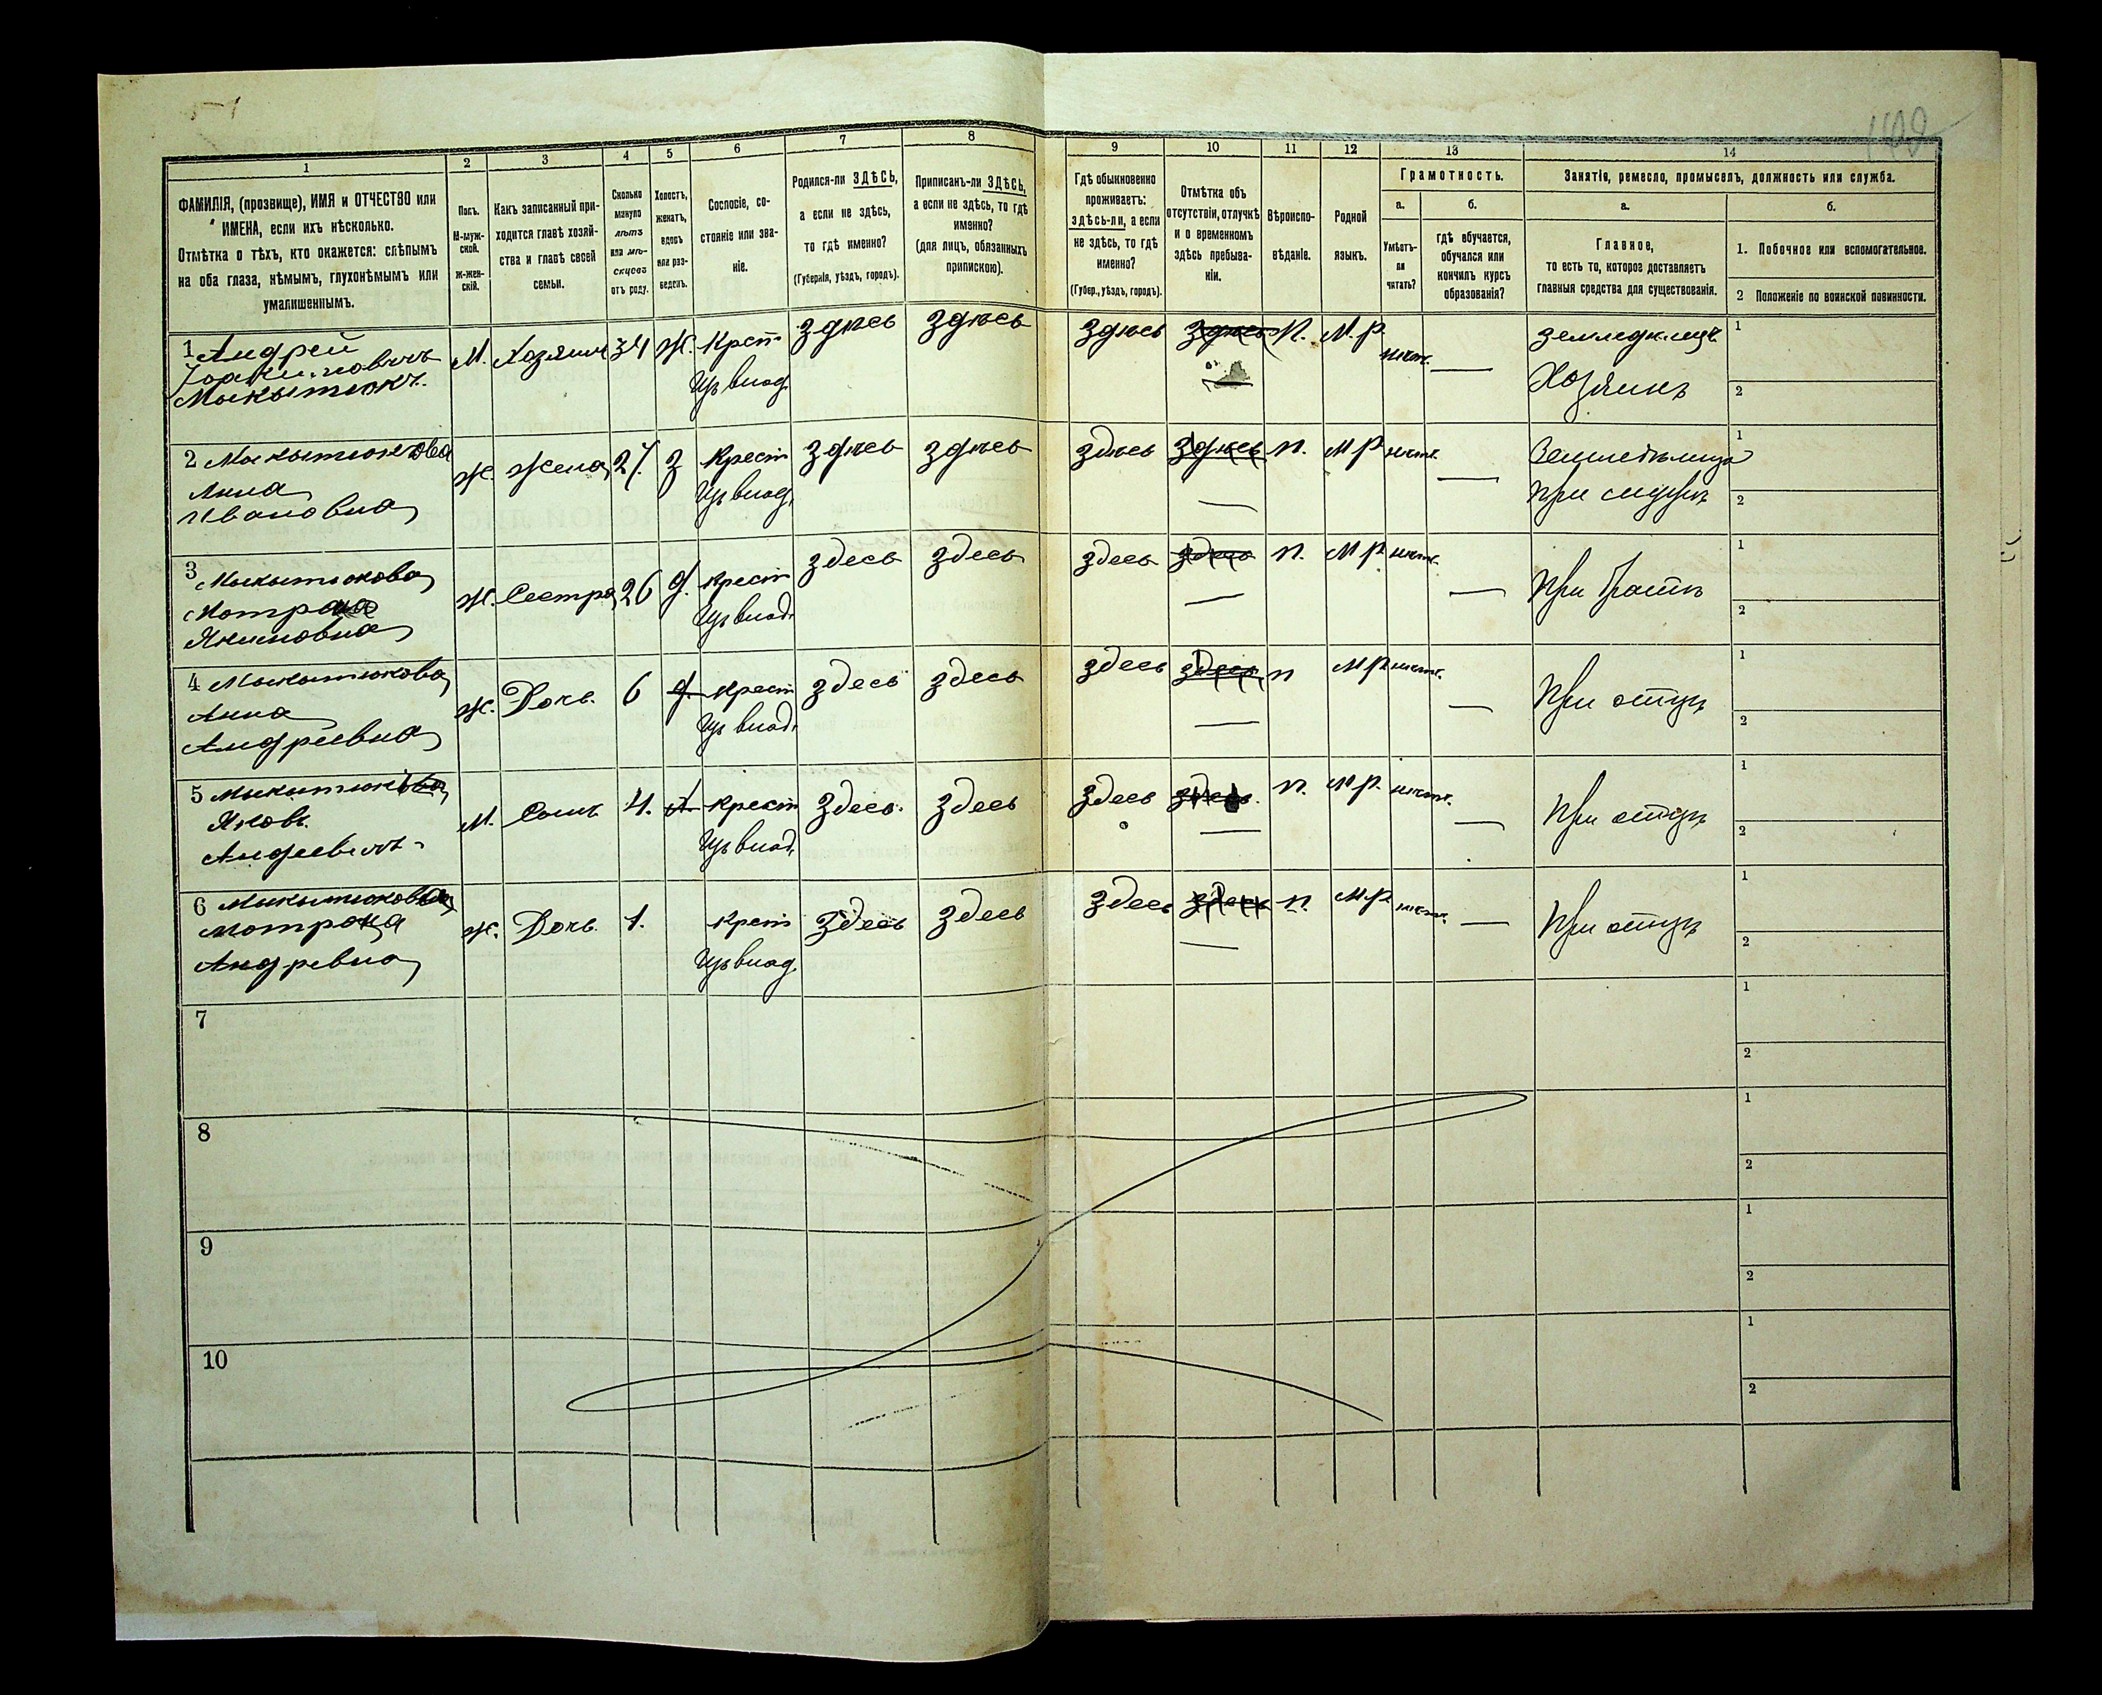 1
2
3
4
5
6
7
8
ФАМИЛІЯ, (прозвище), ИМЯ и ОТЧЕСТВО или
ИМЕНА, если ихъ нѣсколько.
Отмѣтка о тѣхъ, кто окажется: слѣпымъ
на оба глаза, нѣмымъ, глухонѣмымъ или
умалишеннымъ.
Полъ.
М-муж-
ской.
Ж-жен-
скій.
Какъ записанный при-
ходится главѣ хозяй-
ства и главѣ своей
семьи.
Сколько
минуло
лѣтъ
или мѣ-
сяцевъ
отъ роду.
Холостъ,
женатъ,
вдовъ
или раз-
веденъ.
Сословіе, со-
стояніе или зва-
ніе.
Родился-ли ЗДѢСЬ,
а если не здѣсь,
то гдѣ именно?
(Губернія, уѣздъ, городъ).
Приписанъ-ли ЗДѢСЬ,
а если не здѣсь, то гдѣ
именно?
(для лицъ, обязанныхъ
припискою).
9
10
11
12
13
14
Гдѣ обыкновенно
проживаетъ:
здѣсь-ли, а если
не здѣсь, то гдѣ
именно?
(Губер., уѣздъ, городъ).
Отмѣтка объ
отсутствіи, отлучкѣ
и о временномъ
здѣсь пребыва-
ніи.
Вѣроиспо-
вѣданіе.
Родной
языкъ.
Грамотность.
а.
б.
Умѣетъ-
ли
читать?
гдѣ обучается,
обучался или
кончилъ курсъ
образованія?
Занятія, ремесло, промыселъ, должность или служба.
а.
б.
Главное,
то есть то, которое доставляетъ
главныя средства для существованія.
1. Побочное или вспомогательное.
2 Положеніе по воинской повинности.
1 Андрей
Микытюкъ.
М. Хозяинъ 34 Ж. Крест
Изъ влад.
здѣсь здѣсь здѣсь здѣсь П. М.р. нѣтъ. —
земледѣлецъ
Хозяинъ
1
2
2 Микытюкова
Анна
Ивановна
Ж. Жена 27. З Крест
Изъ влад.
здѣсь здѣсь здѣсь здѣсь П. М р нѣтъ. —
При мужѣ
1
2
3 Микытюкова
Якимовна
Ж. Сестра 26 д. Крест
Изъ влад.
здесь здесь здесь здесь П. М р нѣтъ. —
При братѣ
1
2
4 Микытюкова
Анна
Андреевна
Ж. Дочь. 6 д. Крест
Изъ влад.
здесь здесь здесь здесь П М р нѣтъ. —
При отцѣ
1
2
5 Микытюкъ
Яковъ
Андреевичъ
М. Сынъ 4. Крест
Изъ влад.
здесь здесь здесь здесь П. М р. нѣтъ. —
При отцѣ
1
2
6 Микытюкова
Мотрона
Андревна
Ж. Дочь. 1. Крест
Изъ влад.
здесь здесь здесь здесь П. М р нѣтъ. —
При отцѣ
1
2
7
1
2
8
1
2
9
1
2
10
1
2